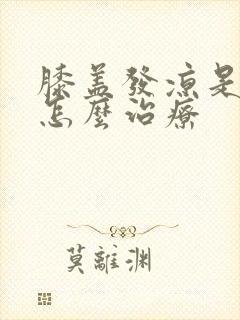 膝盖發凉是
怎麼治療
莫離渊